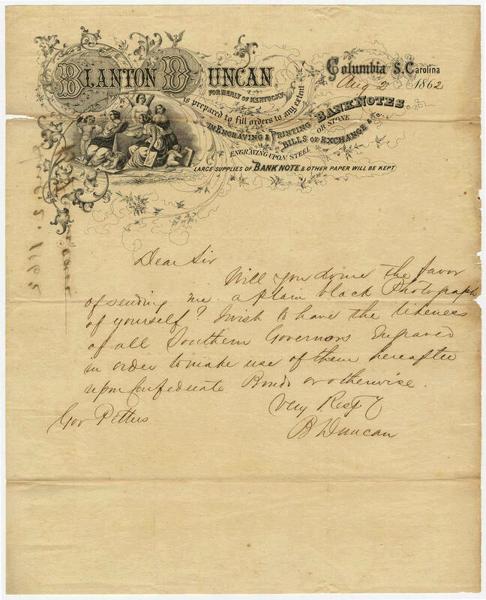 BLANTON DUNCAN
FORMERLY OF KENTUCKY,
is prepared to fill orders to any extent
IN ENGRAVING & PRINTING
BANKNOTES,
ON STONE
BILLS OF EXCHANGE &c.
ENGRAVING UPON STEEL
LARGE SUPPLIES OF BANK NOTE & OTHER PAPER WILL BE KEPT
Columbia S. Carolina
Aug 2 1862
Dear Sir
Will you do me the favor
of sending me a plain black Photograph
of yourself? I wish to have the likeness
of all Southern Governors Engraved
in order to make use of them hereafter
upon Confederate Bonds or otherwise
Very Resp y
B Duncan
Gov Pettus